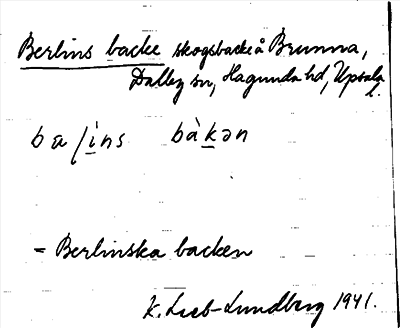 Berlins backe skogsbacke å Brunna,
Dalby sn, Hagunda hd, Upsala l.
bälins bàkən
= Berlinska backen
K. Lieb-Lundberg 1941.